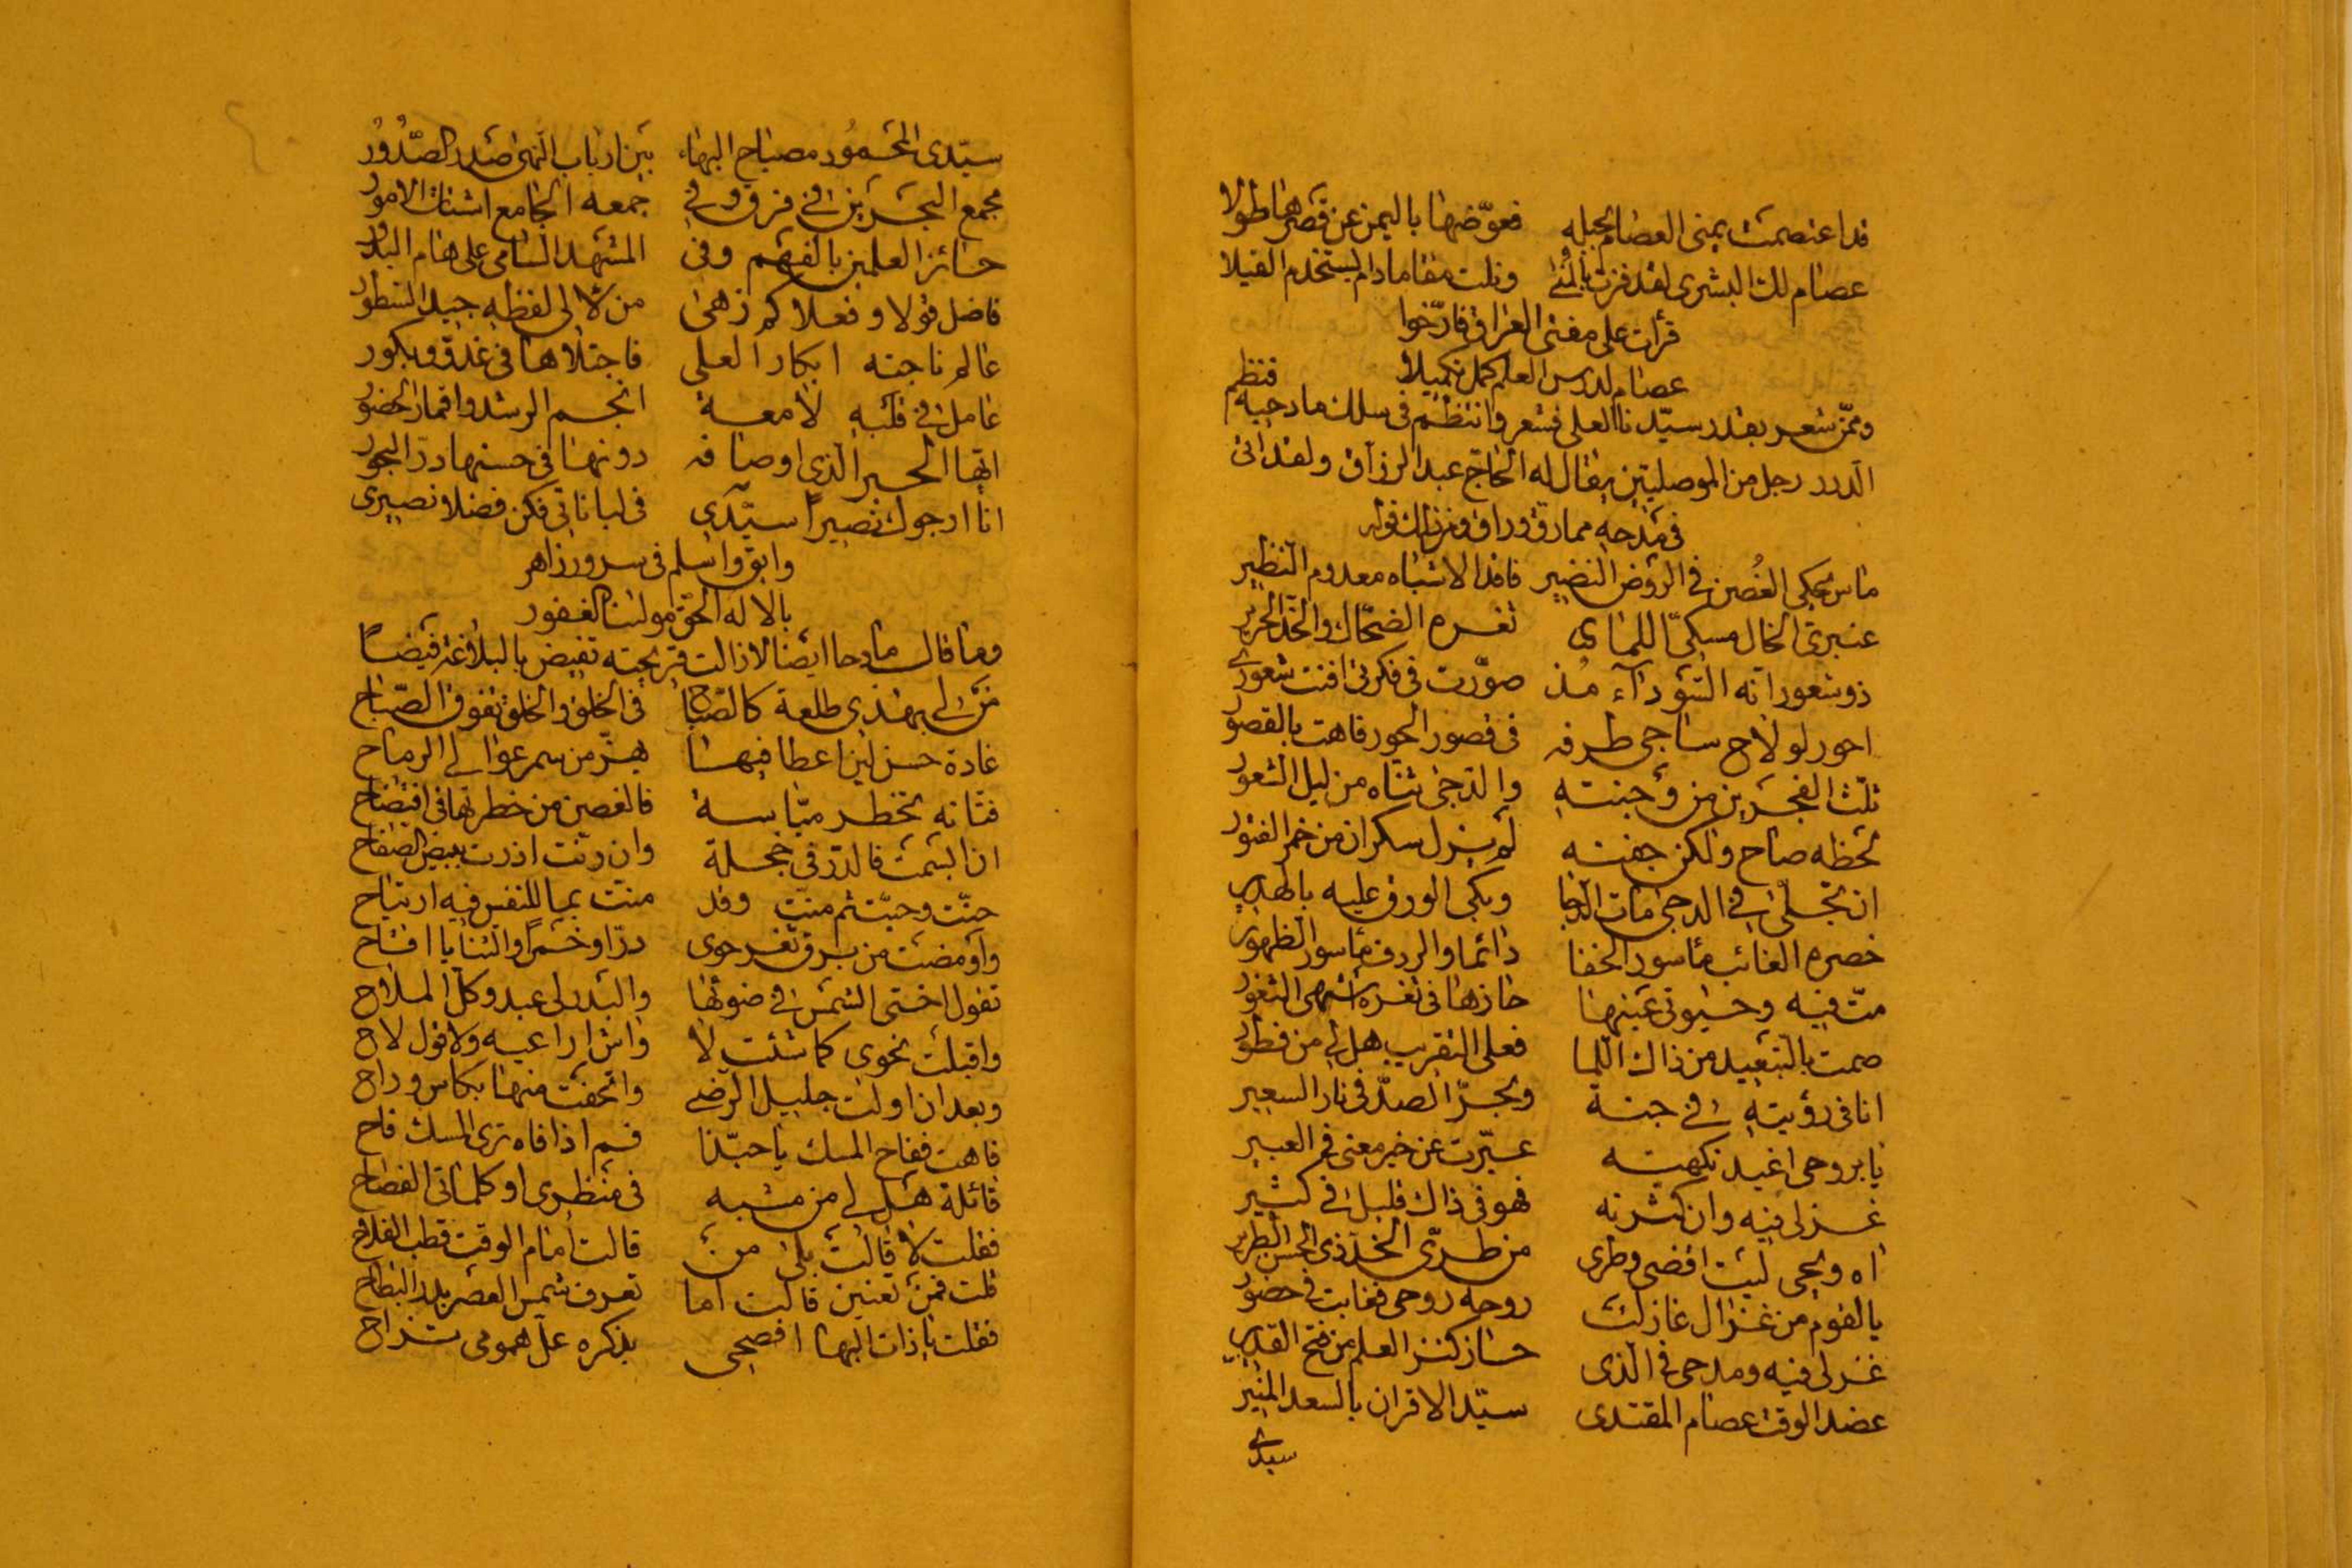 قد اعتصمت يمنى العصام بحبله فعوّضها باليمن عن قصرها طولا
عصام لك البشرى لقد فزت بالمنى ونلت مقاما دام يستخدم القيلا
قرأت على مفتى العراق فارّخوا
عصام لدرس العلم كمل تكميلا
وممّن شعر بقدر سيّدنا العلى فشعر وانتظم فى سلك مادحيه فنظم
الدرر رجل من الموصليّين يقال له الحاج عبد الرزاق ولقد اتى
فى مدحه مما رق وراق ومن ذلك قوله
ماس يحكى الغُصن فى الروض النضير فاقد الاشباه معدوم النّظير
عنبرىّ الخال مسكىّ اللماى ثغره الضحّاك والخدّ الحرير
ذو شعور انه السّوداء مُذ صوّرت فى فكرتى افنت شعورى
احور لو لاح ساجى طرفه فى قصور الحور فاهت بالقصور
ثلّث الفجرين من وجنته والدّجى ثنّاه من ليل الشعور
لحظه صاح ولكن جفنه لم يزل سكران من خمر الفتور
ان تجلّى فى الدجى مات الدجا وبكى الورق عليه بالهدير
خصره الغائب مأسور الخفا دائما والردف مأسور الظهور
متّ فيه وحيوتى عينها حازها فى ثغره اشهى الثغور
صمت بالتبعيد من ذاك اللما فعلى التقريب هل لى من فطور
انا فى رؤيته فى جنة وبحرّ الصدّ فى نار السعير
يا بروحى اغيد نكهته عبّرت عن خير معنى فى العبير
غزلى فيه وان كثرته فهو فى ذاك قليل فى كثير
اه ويحى ليت اقضى وطرى من طرىّ الخدّ ذى الحسن الطرير
يا لقوم من غزال غازلت روحه روحى فغابت فى حضور
غزلى فيه ومدحى فى الذى حاز كنز العلم من فتح القدير
عضد الوقت عصام المقتدى سيّد الاقران بالسعد المنير
سيدى
سيّدى المحمُود مصباح البهاء بين ارباب النهى صدر الصّدُور
مجمع البحرين فى فرق وفى جمعه الجامع اشتات الامور
حائز العلمين بالفهم وفى المشهد السامى على هام البدور
فاضل قولا وفعلا كم زهى من لالى لفظه جيد السّطور
عالم ناجته ابكار العلى فاجتلاها فى غدوّ وبكور
عامل فى قلبه لامعة انجم الرشد واقمار الحضور
ايّها الحبر الّذى اوصافه دونها فى حسنها درّ البحور
انا ارجوك نصيراً سيّدى فى لباناتى فكن فضلا نصيرى
وابق واسلم فى سرور زاهر
بالاله الحقّ مولينا الغفور
ومما قال مادحا ايضا لازالت قريحته تفيض بالبلاغة فيضاً
من لى بهندى طلعة كالصّباح فى الخلق والخلق تفوق الصّباح
غادة حسن لين اعطافها هزّ من سمر عوالى الرماح
فتانه تخطر ميّاسة فالغصن من خطرتها فى افتضاح
ان ابتسمت فالدرّ فى خجلة وان رنت ازرت ببيض الصفاح
حنّت وحيّت ثم منّت وقد منّت بما للنفس فيه ارتياح
واومضت من برق ثغر حوى درّا وخمراً والثنايا اقاح
تقول اختى الشمس فى ضوئها والبدر لى عبد وكلّ الملاح
واقبلت نحوى كما شئت لا واش اراعيه ولا قول لاح
وبعد ان اولت جليل الرضى واتحفت منها بكاس وراح
فاهت ففاح المسك يا حبّذا فم اذا فاه ترى المسك فاح
قائلة هل لى من مشبه فى منظرى او كلماتى الفصاح
فقلت لا قالت بلى من قالت امام الوقت قطب الفلاح
قلت فمن تعنين قالت اما تعرف شمس العصر بدر البطاح
فقلت يا ذات البها افصحى بذكره علّ همومى تزاح